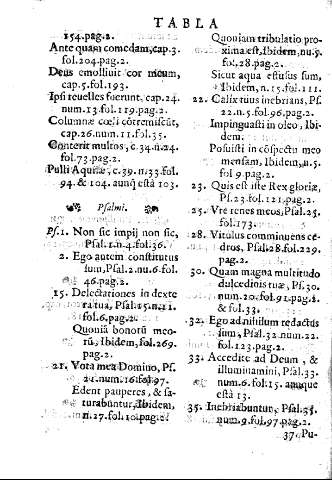 TABLA
154.pag.2.
Ante quam comedam, cap.3.
fol.204.pag.2.
Deus emolliuit cor meum,
cap.5.fol.193.
Ipsi reuelles fuerunt, cap.24.
num.13.fol.119.pag.2.
Columnæ cœli cōtremiscūt,
cap.26.num.11.fol.35.
Conterit multos, c.34.n.24.
fol.73.pag.2.
Pulli Aquilæ, c.39.n.33.fol.
94. & 104. aunq̄ està 103.
Psalmi.
Ps.1. Non sic impij non sic,
Psal.1.n.4.fol.36.
2. Ego autem constitutus
sum, Psal.2.nu.6.fol.
46.pag.2.
15. Delectationes in dexte
ra tua, Psal.15.n.11.
fol.6.pag.2.
Quoniā bonorū meo-
rū, Ibidem, fol.269.
pag.2.
21. Vota mea Domino, Ps.
21.num.26.fol.97.
Edent pauperes, & sa-
turabūntur, Ibidem,
n.27.fol.10.pag.2.
Quoniam tribulatio pro-
xima est, Ibidem, nu.
fol.28.pag.2.
Sicut aqua effusus sum,
Ibidem, n.15.fol.111.
22. Calix tuus inebrians, Ps.
22.n.5.fol.96.pag.2.
Impinguasti in oleo, Ibi-
dem.
Posuisti in cōspectu meo
mensam, Ibidem, n.5.
fol 9.pag.2.
23. Quis est iste Rex gloriæ,
Ps.23.fol.121.pag.2.
25. Vre renes meos, Psal.25.
fol.173.
28. Vitulus comminuens ce-
dros, Psal.28.fol.229.
pag.2.
30. Quam magna multitudo
dulcedinis tuæ, Ps.30.
num.20.fol.91.pag.2.
& fol.33.
32. Ego ad nihilum redactus
sum, Psal.32.num.22.
fol.123.pag.2.
33. Accedite ad Deum, &
illuminamini, Psal.33.
num.6.fol.15. aunque
està 13.
35. Inebriabuntur, Psal.35.
num.9.fol.97.pag.2.
37. Pu-